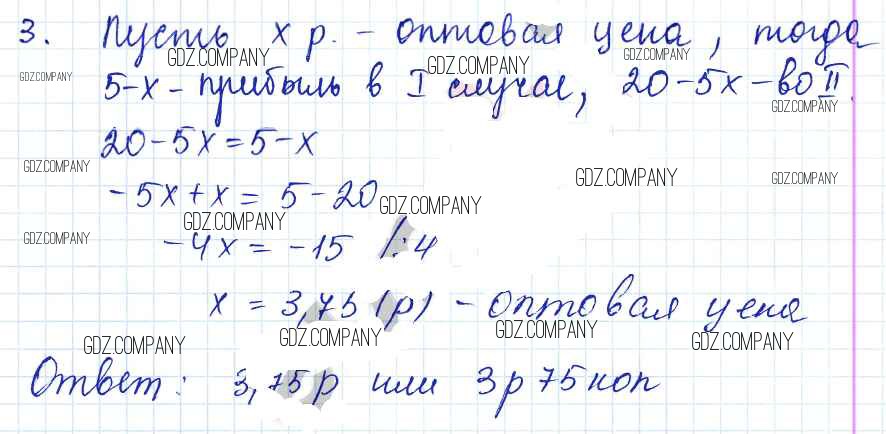 3. Пусть х р. - оптовая цена, тогда
GDZ.COMPANY GDZ.COMPANY GDZ.COMPANY GDZ.COMPANY
5-х - прибыль в I случае, 20-5х - во II.
GDZ.COMPANY
20-5х=5-х
GDZ.COMPANY GDZ.COMPANY GDZ.COMPANY
-5х+х= 5-20
GDZ.COMPANY GDZ.COMPANY
GDZ.COMPANY
-4х= -15 /:4
х = 3,75 (р) - оптовая цена
GDZ.COMPANY GDZ.COMPANY GDZ.COMPANY GDZ.COMPANY
Ответ: 3,75 р или 3р 75 коп